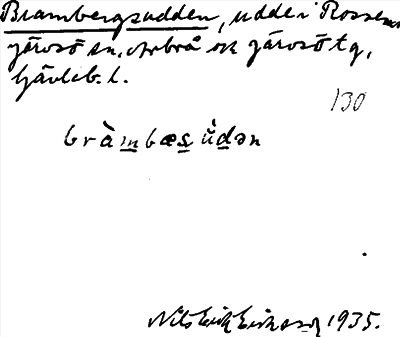 Brambergsudden, udde i Rossen
Järvsö sn. Arbrå och Järvsö tg,
Gävleb. l.
130
bràm̲bæs̲ ùd̲ən
Nils Erik Eriksson 1935.